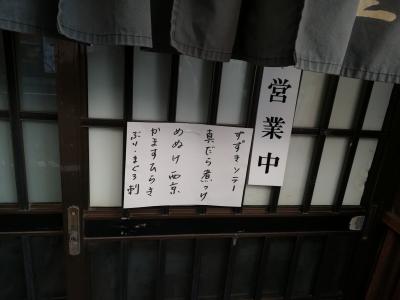 営業中
すずきソテー
真だら煮つけ
めぬけ西京
かますひらき
ぶり・まぐろ刺